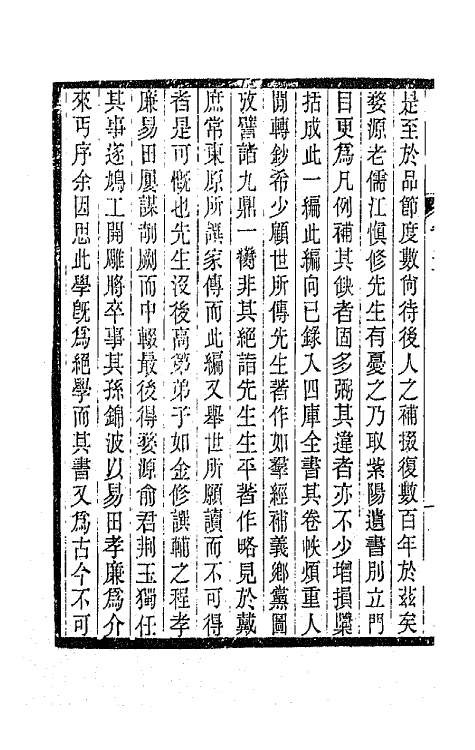 是至於品節度數尙待後人之補掇復數百年於茲矣
婺源老儒江愼修先生有憂之乃取紫陽遺書別立門
目更爲凡例補其缺者固多弼其違者亦不少增損櫽
括成此一編此編向已錄入四庫全書其卷帙煩重人
閒轉鈔希少顧世所傳先生著作如羣經補義鄉黨圖
攷譬諸九鼎一臠非其絕詣先生生平著作略見於戴
庶常東原所譔家傳而此編又舉世所願讀而不可得
者是可慨也先生沒後高第弟子如金修譔輔之程孝
廉易田屢謀剞劂而中輟最後得婺源俞君荆玉獨任
其事遂鳩工開雕將卒事其孫錦波以易田孝廉爲介
來丐序余因思此學旣爲絕學而其書又爲古今不可